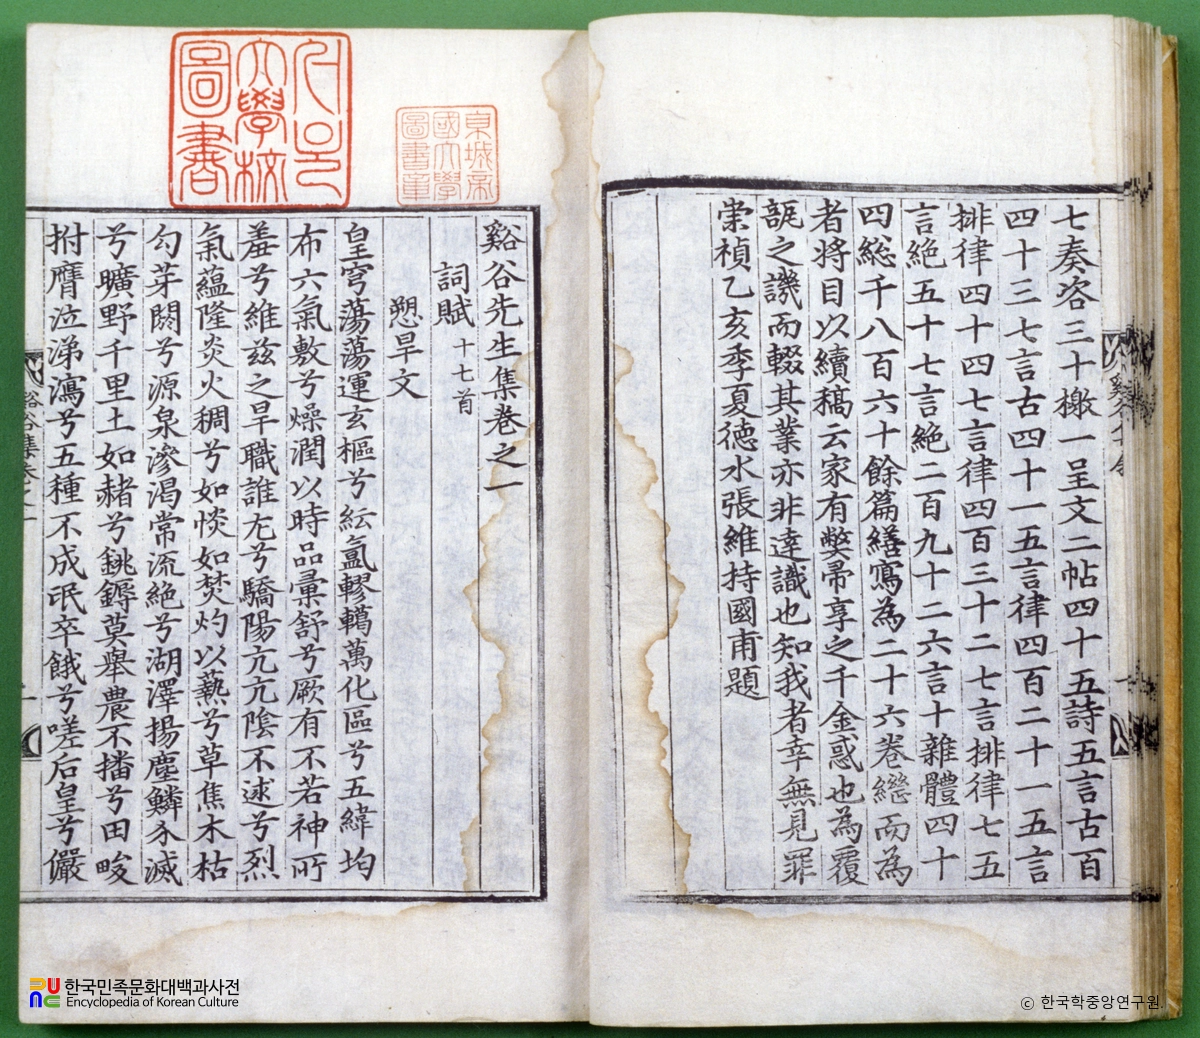 七奏咨三十檄一呈文二帖四十五詩五言古百
四十三七言古四十一五言律四百二十一五言
排律四十四七言律四百三十二七言排律七五
言絶五十七言絶二百九十二六言十雜體四十
四総千八百六十餘篇繕寫為二十六卷繼而為
者將目以續稿云家有弊帚享之千金惑也為覆
瓿之譏而輟其業亦非達識也知我者幸無見罪
崇禎乙亥季夏德水張維持國甫題
東城帝
國大學
圖書章
大學校
圖書
谿谷先生集卷之一
詞賦 十七首
愬旱文
皇穹蕩蕩運玄樞兮紜氳轇轕萬化區兮五緯均
布六氣敷兮燥潤以時品彙舒兮厥有不若神所
羞兮維茲之旱職誰尤兮驕陽亢亢陰不逑兮烈
氣蘊隆炎火稠兮如惔如焚灼以爇兮草焦木枯
勾芽閼兮源泉滲渴常流絶兮湖澤揚塵鱗介滅
兮曠野千里土如赭兮銚鎒莫舉農不播兮田畯
拊膺泣涕瀉兮五種不成氓卒餓兮嗟后皇兮儼
谿谷集卷之一
한국민족문화대백과사전
Encyclopedia of Korean Culture
ⓒ 한국학중앙연구원.